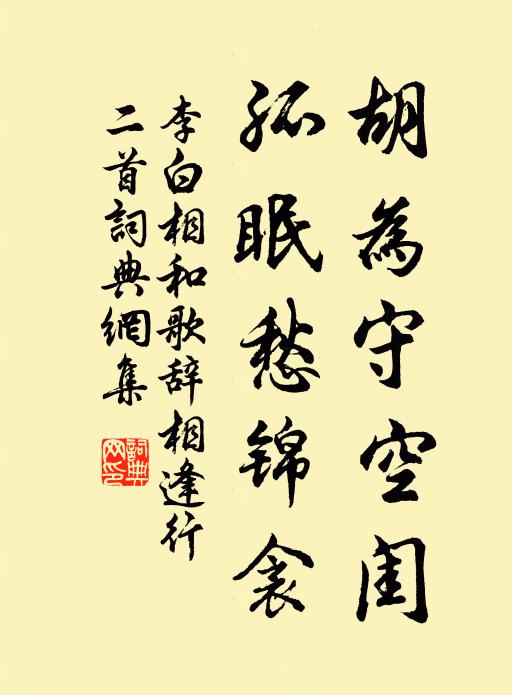 胡為守空閨
孤眠愁錦衾
李白相和歌辞相逢行
二首詞典網集
詞典網印